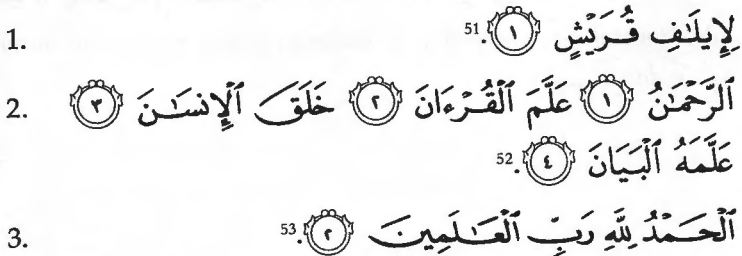 1. لِإِيلَٰفِ قُرَيْشٍ ١ .51
2. ٱلرَّحْمَٰنُ ١ عَلَّمَ ٱلْقُرْءَانَ ٢ خَلَقَ ٱلْإِنسَٰنَ ٣
عَلَّمَهُ ٱلْبَيَانَ ٤ .52
3. ٱلْحَمْدُ لِلَّهِ رَبِّ ٱلْعَٰلَمِينَ ٢ .53